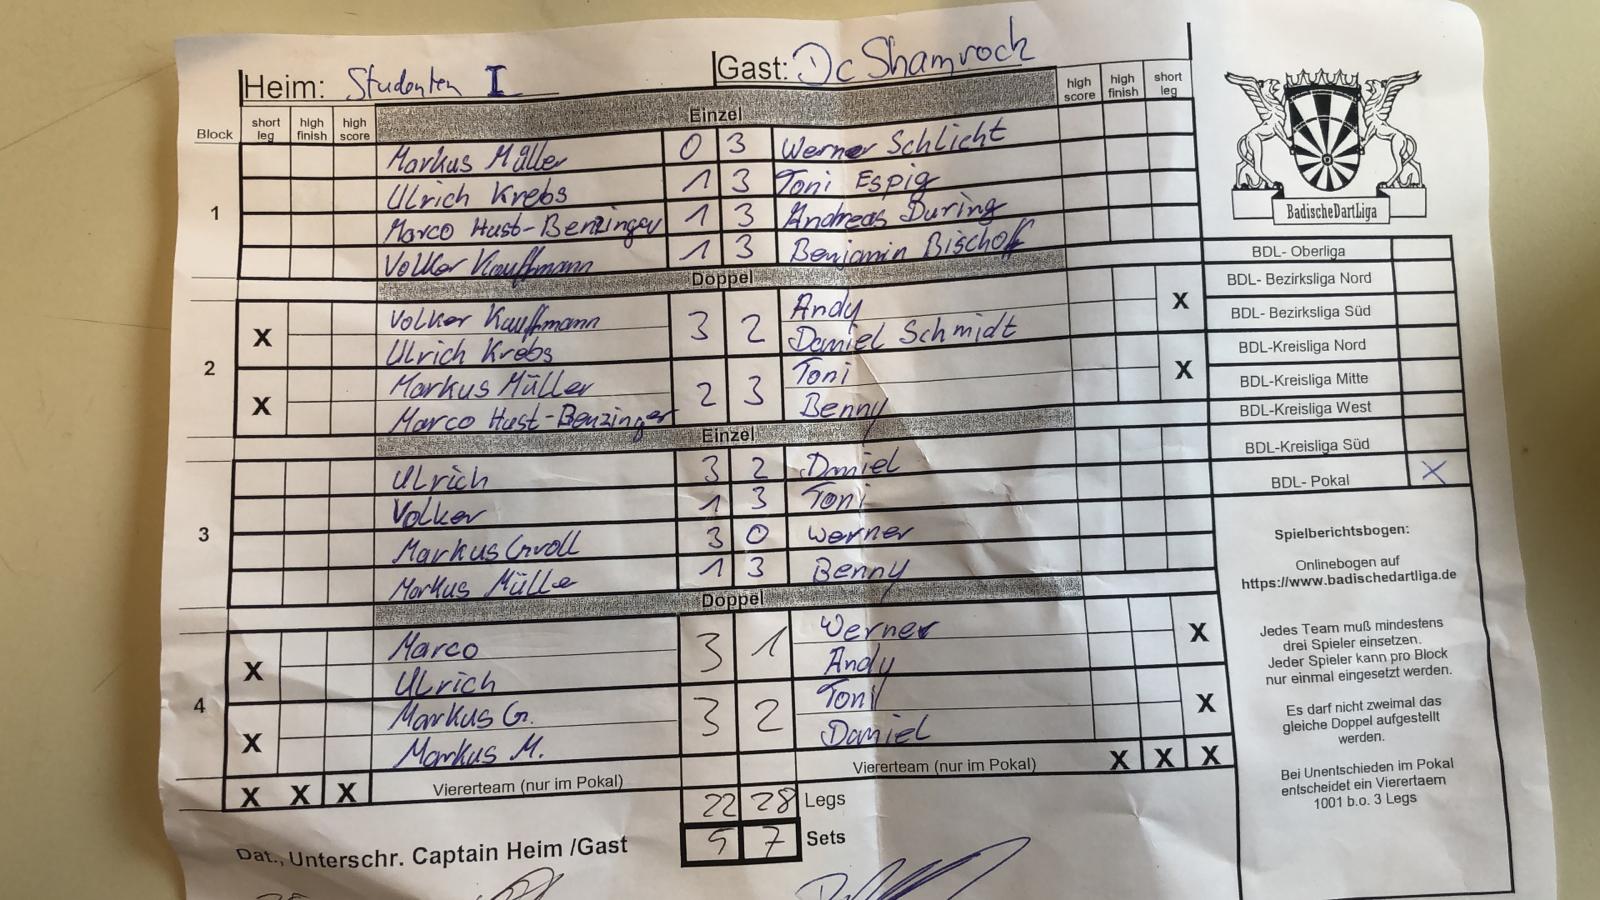 Heim: Studenten I Gast: Dc Shamrock
Block short leg high finish high score Einzel high score high finish short leg
1
Markus Müller 0 3 Werner Schlicht
Ulrich Krebs 1 3 Toni Espig
Marco Hust-Benzinger 1 3 Andreas Düring
Volker Kauffmann 1 3 Benjamin Bischoff
Doppel
2
X Volker Kauffmann 3 2 Andy X
Ulrich Krebs Daniel Schmidt
X Markus Müller 2 3 Toni X
Marco Hust-Benzinger Benny
Einzel
3
Ulrich 3 2 Daniel
Volker 1 3 Toni
Markus Groll 3 0 Werner
Markus Müller 1 3 Benny
Doppel
4
X Marco 3 1 Werner X
Ulrich Andy
X Markus G. 3 2 Toni X
Markus M. Daniel
X X X Viererteam (nur im Pokal) Viererteam (nur im Pokal) X X X
22 28 Legs
5 7 Sets
Dat., Unterschr. Captain Heim /Gast
BadischeDartLiga
BDL- Oberliga
BDL- Bezirksliga Nord
BDL- Bezirksliga Süd
BDL-Kreisliga Nord
BDL-Kreisliga Mitte
BDL-Kreisliga West
BDL-Kreisliga Süd
BDL- Pokal X
Spielberichtsbogen:
Onlinebogen auf
https://www.badischedartliga.de
Jedes Team muß mindestens
drei Spieler einsetzen.
Jeder Spieler kann pro Block
nur einmal eingesetzt werden.
Es darf nicht zweimal das
gleiche Doppel aufgestellt
werden.
Bei Unentschieden im Pokal
entscheidet ein Vierertaem
1001 b.o. 3 Legs